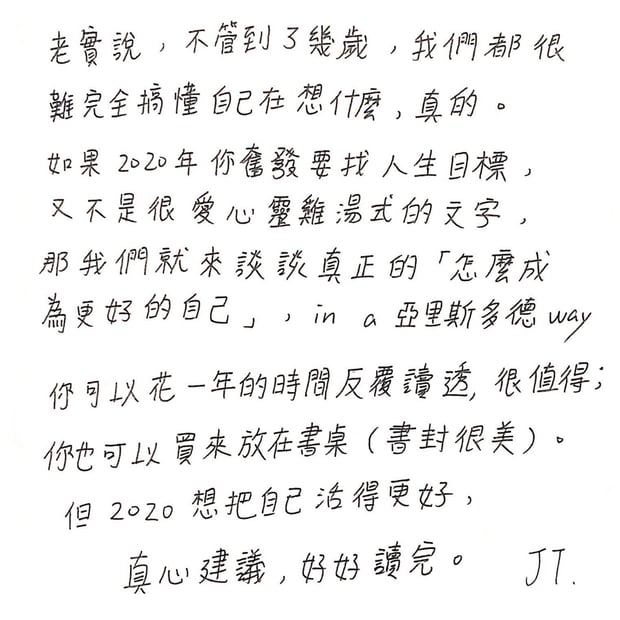 老實說，不管到了幾歲，我們都很
難完全搞懂自己在想什麼，真的。
如果2020年你奮發要找人生目標，
又不是很愛心靈雞湯式的文字，
那我們就來談談真正的「怎麼成
為更好的自己」，in a 亞里斯多德way
你可以花一年的時間反覆讀透，很值得；
你也可以買來放在書桌（書封很美）。
但2020想把自己活得更好，
真心建議，好好讀完。 JT.